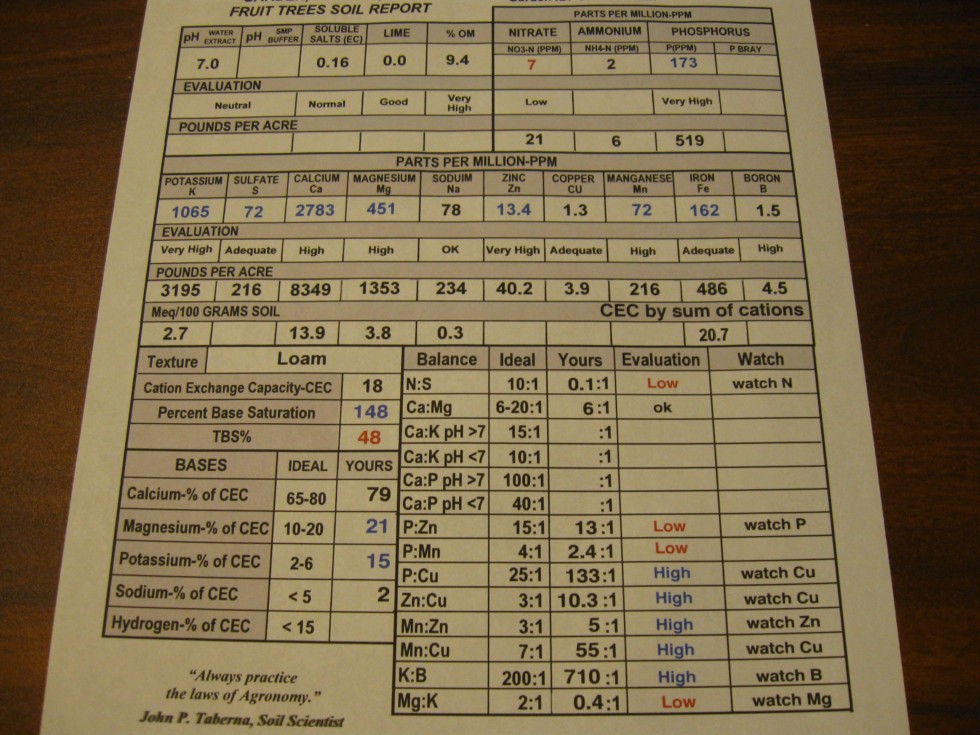 FRUIT TREES SOIL REPORT
PARTS PER MILLION-PPM
pH WATER EXTRACT pH SMP BUFFER SOLUBLE SALTS (EC) LIME % OM NITRATE AMMONIUM PHOSPHORUS
NO3-N (PPM) NH4-N (PPM) P(PPM) P BRAY
7.0 0.16 0.0 9.4 7 2 173
EVALUATION
Neutral Normal Good Very High Low Very High
POUNDS PER ACRE
21 6 519
PARTS PER MILLION-PPM
POTASSIUM K SULFATE S CALCIUM Ca MAGNESIUM Mg SODUIM Na ZINC Zn COPPER CU MANGANESE Mn IRON Fe BORON B
1065 72 2783 451 78 13.4 1.3 72 162 1.5
EVALUATION
Very High Adequate High High OK Very High Adequate High Adequate High
POUNDS PER ACRE
3195 216 8349 1353 234 40.2 3.9 216 486 4.5
Meq/100 GRAMS SOIL CEC by sum of cations
2.7 13.9 3.8 0.3 20.7
Texture Loam
Cation Exchange Capacity-CEC 18
Percent Base Saturation 148
TBS% 48
BASES IDEAL YOURS
Calcium-% of CEC 65-80 79
Magnesium-% of CEC 10-20 21
Potassium-% of CEC 2-6 15
Sodium-% of CEC < 5 2
Hydrogen-% of CEC < 15
Balance Ideal Yours Evaluation Watch
N:S 10:1 0.1:1 Low watch N
Ca:Mg 6-20:1 6:1 ok
Ca:K pH >7 15:1 :1
Ca:K pH <7 10:1 :1
Ca:P pH >7 100:1 :1
Ca:P pH <7 40:1 :1
P:Zn 15:1 13:1 Low watch P
P:Mn 4:1 2.4:1 Low
P:Cu 25:1 133:1 High watch Cu
Zn:Cu 3:1 10.3 :1 High watch Cu
Mn:Zn 3:1 5 :1 High watch Zn
Mn:Cu 7:1 55 :1 High watch Cu
K:B 200:1 710 :1 High watch B
Mg:K 2:1 0.4:1 Low watch Mg
"Always practice
the laws of Agronomy."
John P. Taberna, Soil Scientist